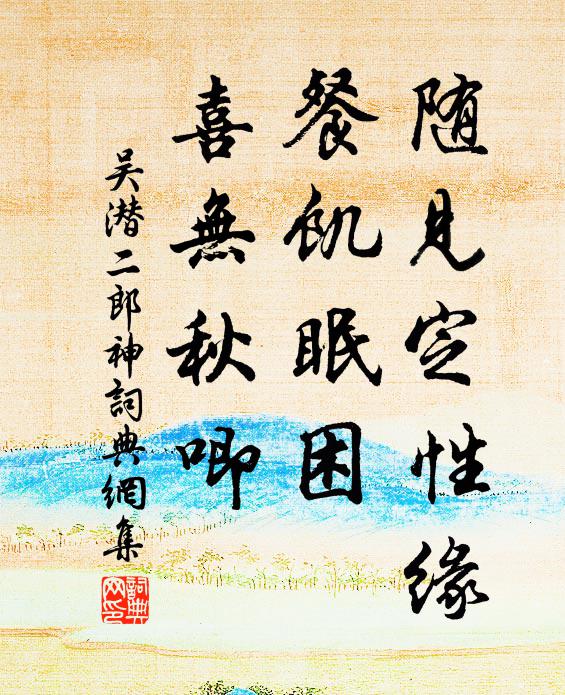 随見定性緣
餐飢眠困
喜無秋唧
吴潜二郎神詞典網集
詞典